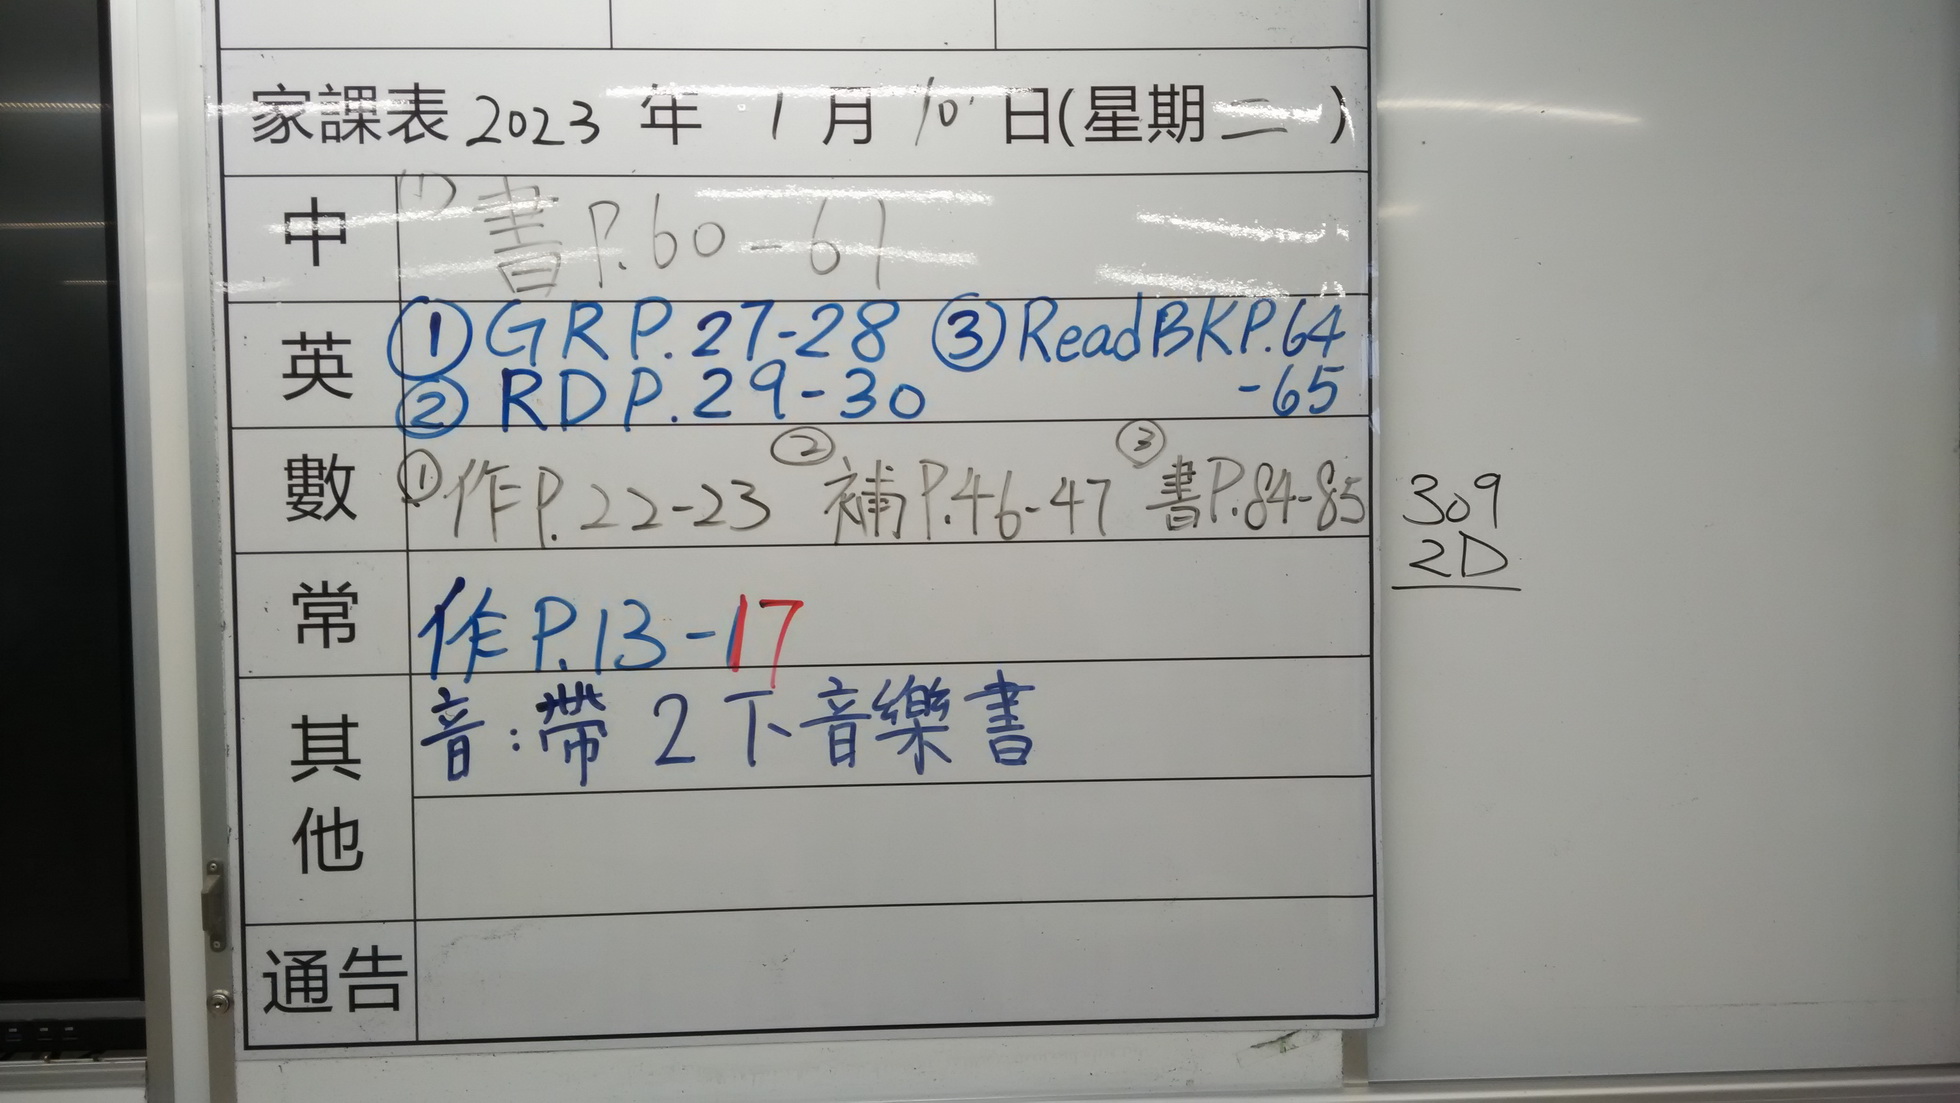 家課表 2023 年 1 月 10 日(星期二)
中
(1) 書 P.60-61
英
① GR P.27-28 ③ Read BK P.64
② RD P.29-30 -65
數
① 作 P.22-23 ② 補 P.46-47 ③ 書 P.84-85
常
作 P.13-17
其他
音:帶 2下音樂書
通告
309
2D